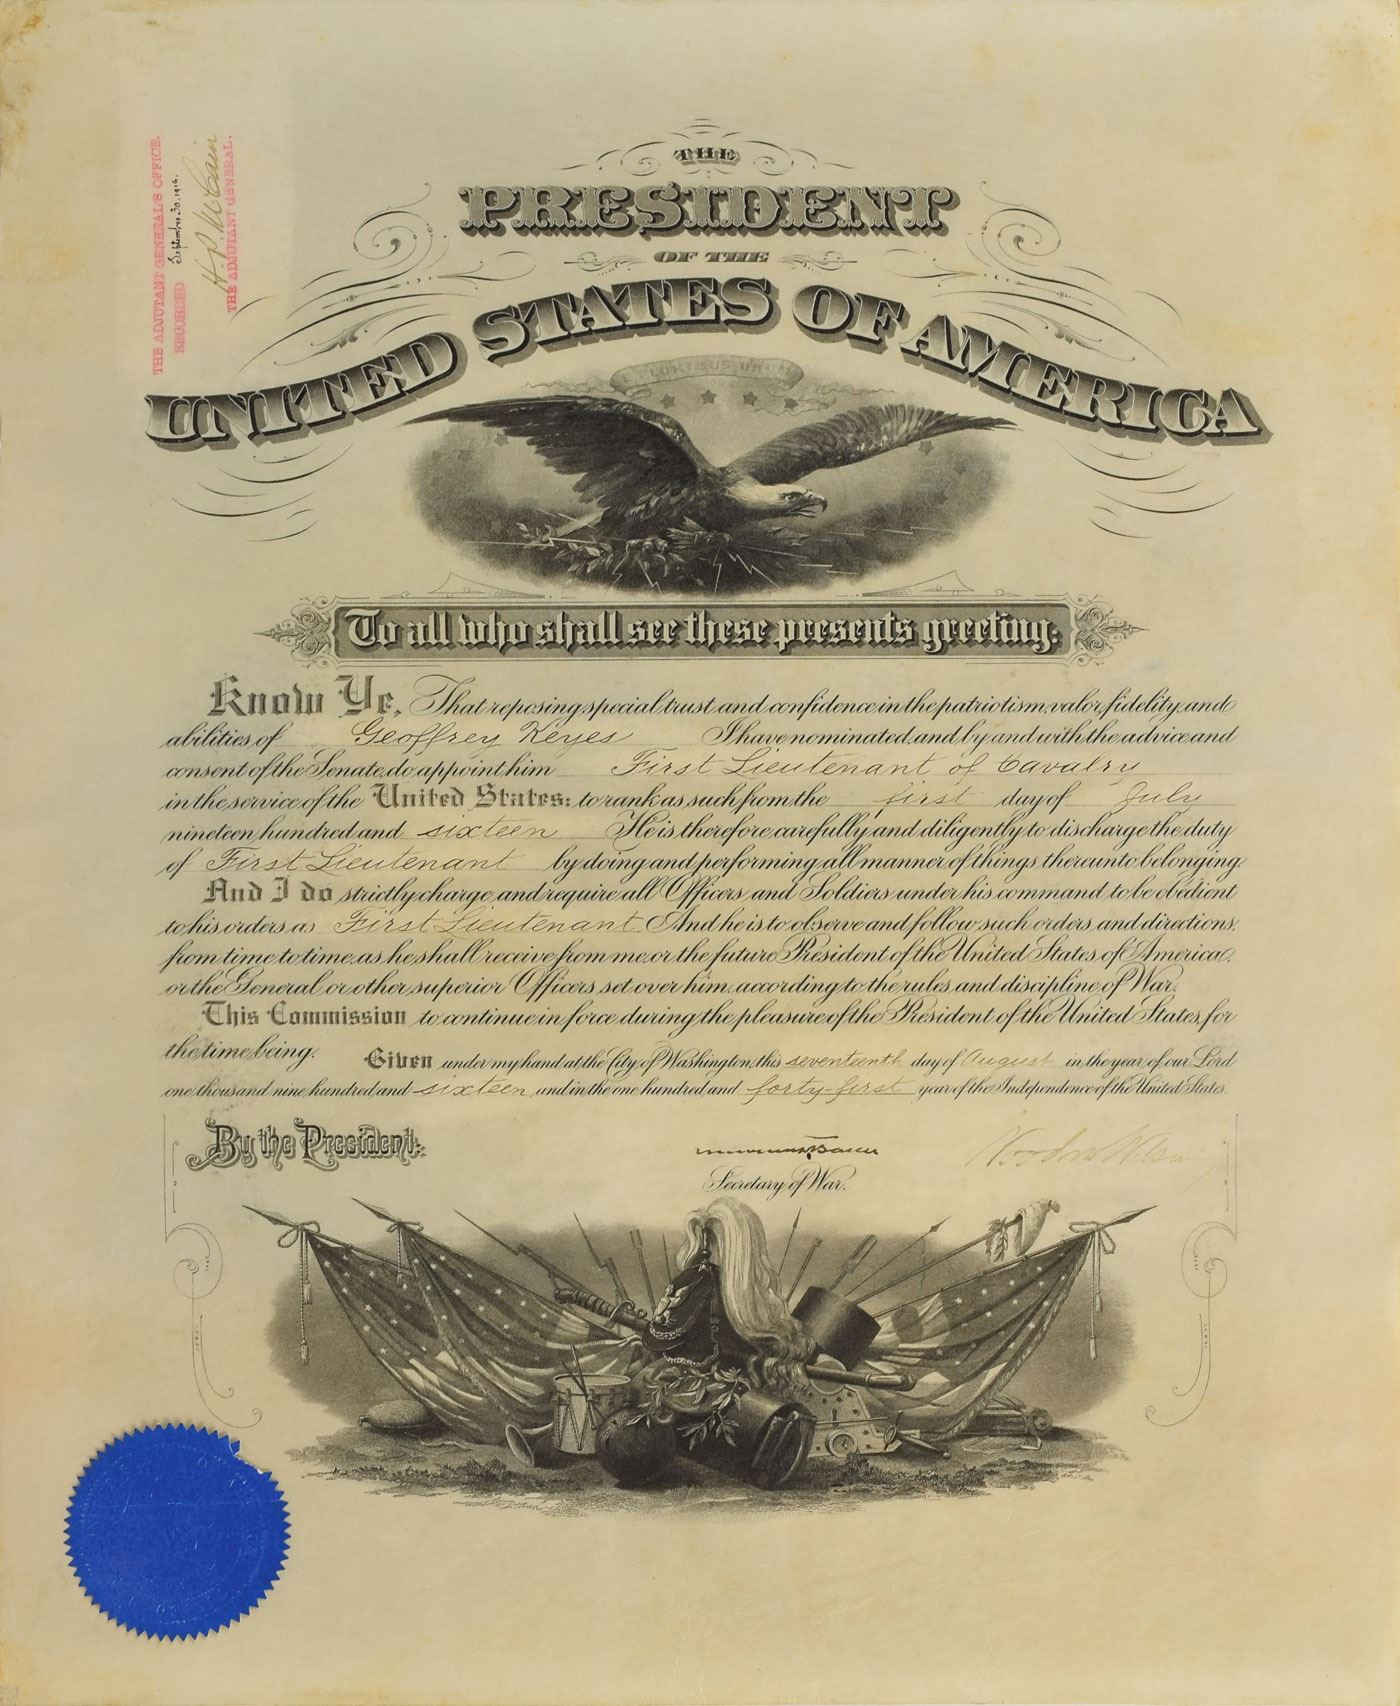 THE ADJUTANT GENERAL'S OFFICE.
RECORDED September 30, 1916.
H. P. McCain
THE ADJUTANT GENERAL.
THE
PRESIDENT
OF THE
UNITED STATES OF AMERICA
E PLURIBUS UNUM
To all who shall see these presents greeting:
Know Ye, That reposing special trust and confidence in the patriotism, valor, fidelity, and
abilities of Geoffrey Keyes I have nominated, and by and with the advice and
consent of the Senate, do appoint him First Lieutenant of Cavalry
in the service of the United States: to rank as such from the first day of July
nineteen hundred and sixteen He is therefore carefully and diligently to discharge the duty
of First Lieutenant by doing and performing all manner of things thereunto belonging.
And I do strictly charge, and require all Officers and Soldiers under his command to be obedient
to his orders as First Lieutenant And he is to observe and follow such orders, and directions,
from time to time, as he shall receive from me, or the future President of the United States of America,
or the General or other superior Officers set over him, according to the rules and discipline of War.
This Commission to continue in force during the pleasure of the President of the United States, for
the time being. Given under my hand at the City of Washington, this seventeenth day of August in the year of our Lord
one thousand nine hundred and sixteen, and in the one hundred and forty-first year of the Independence of the United States.
By the President: Woodrow Wilson
Secretary of War.